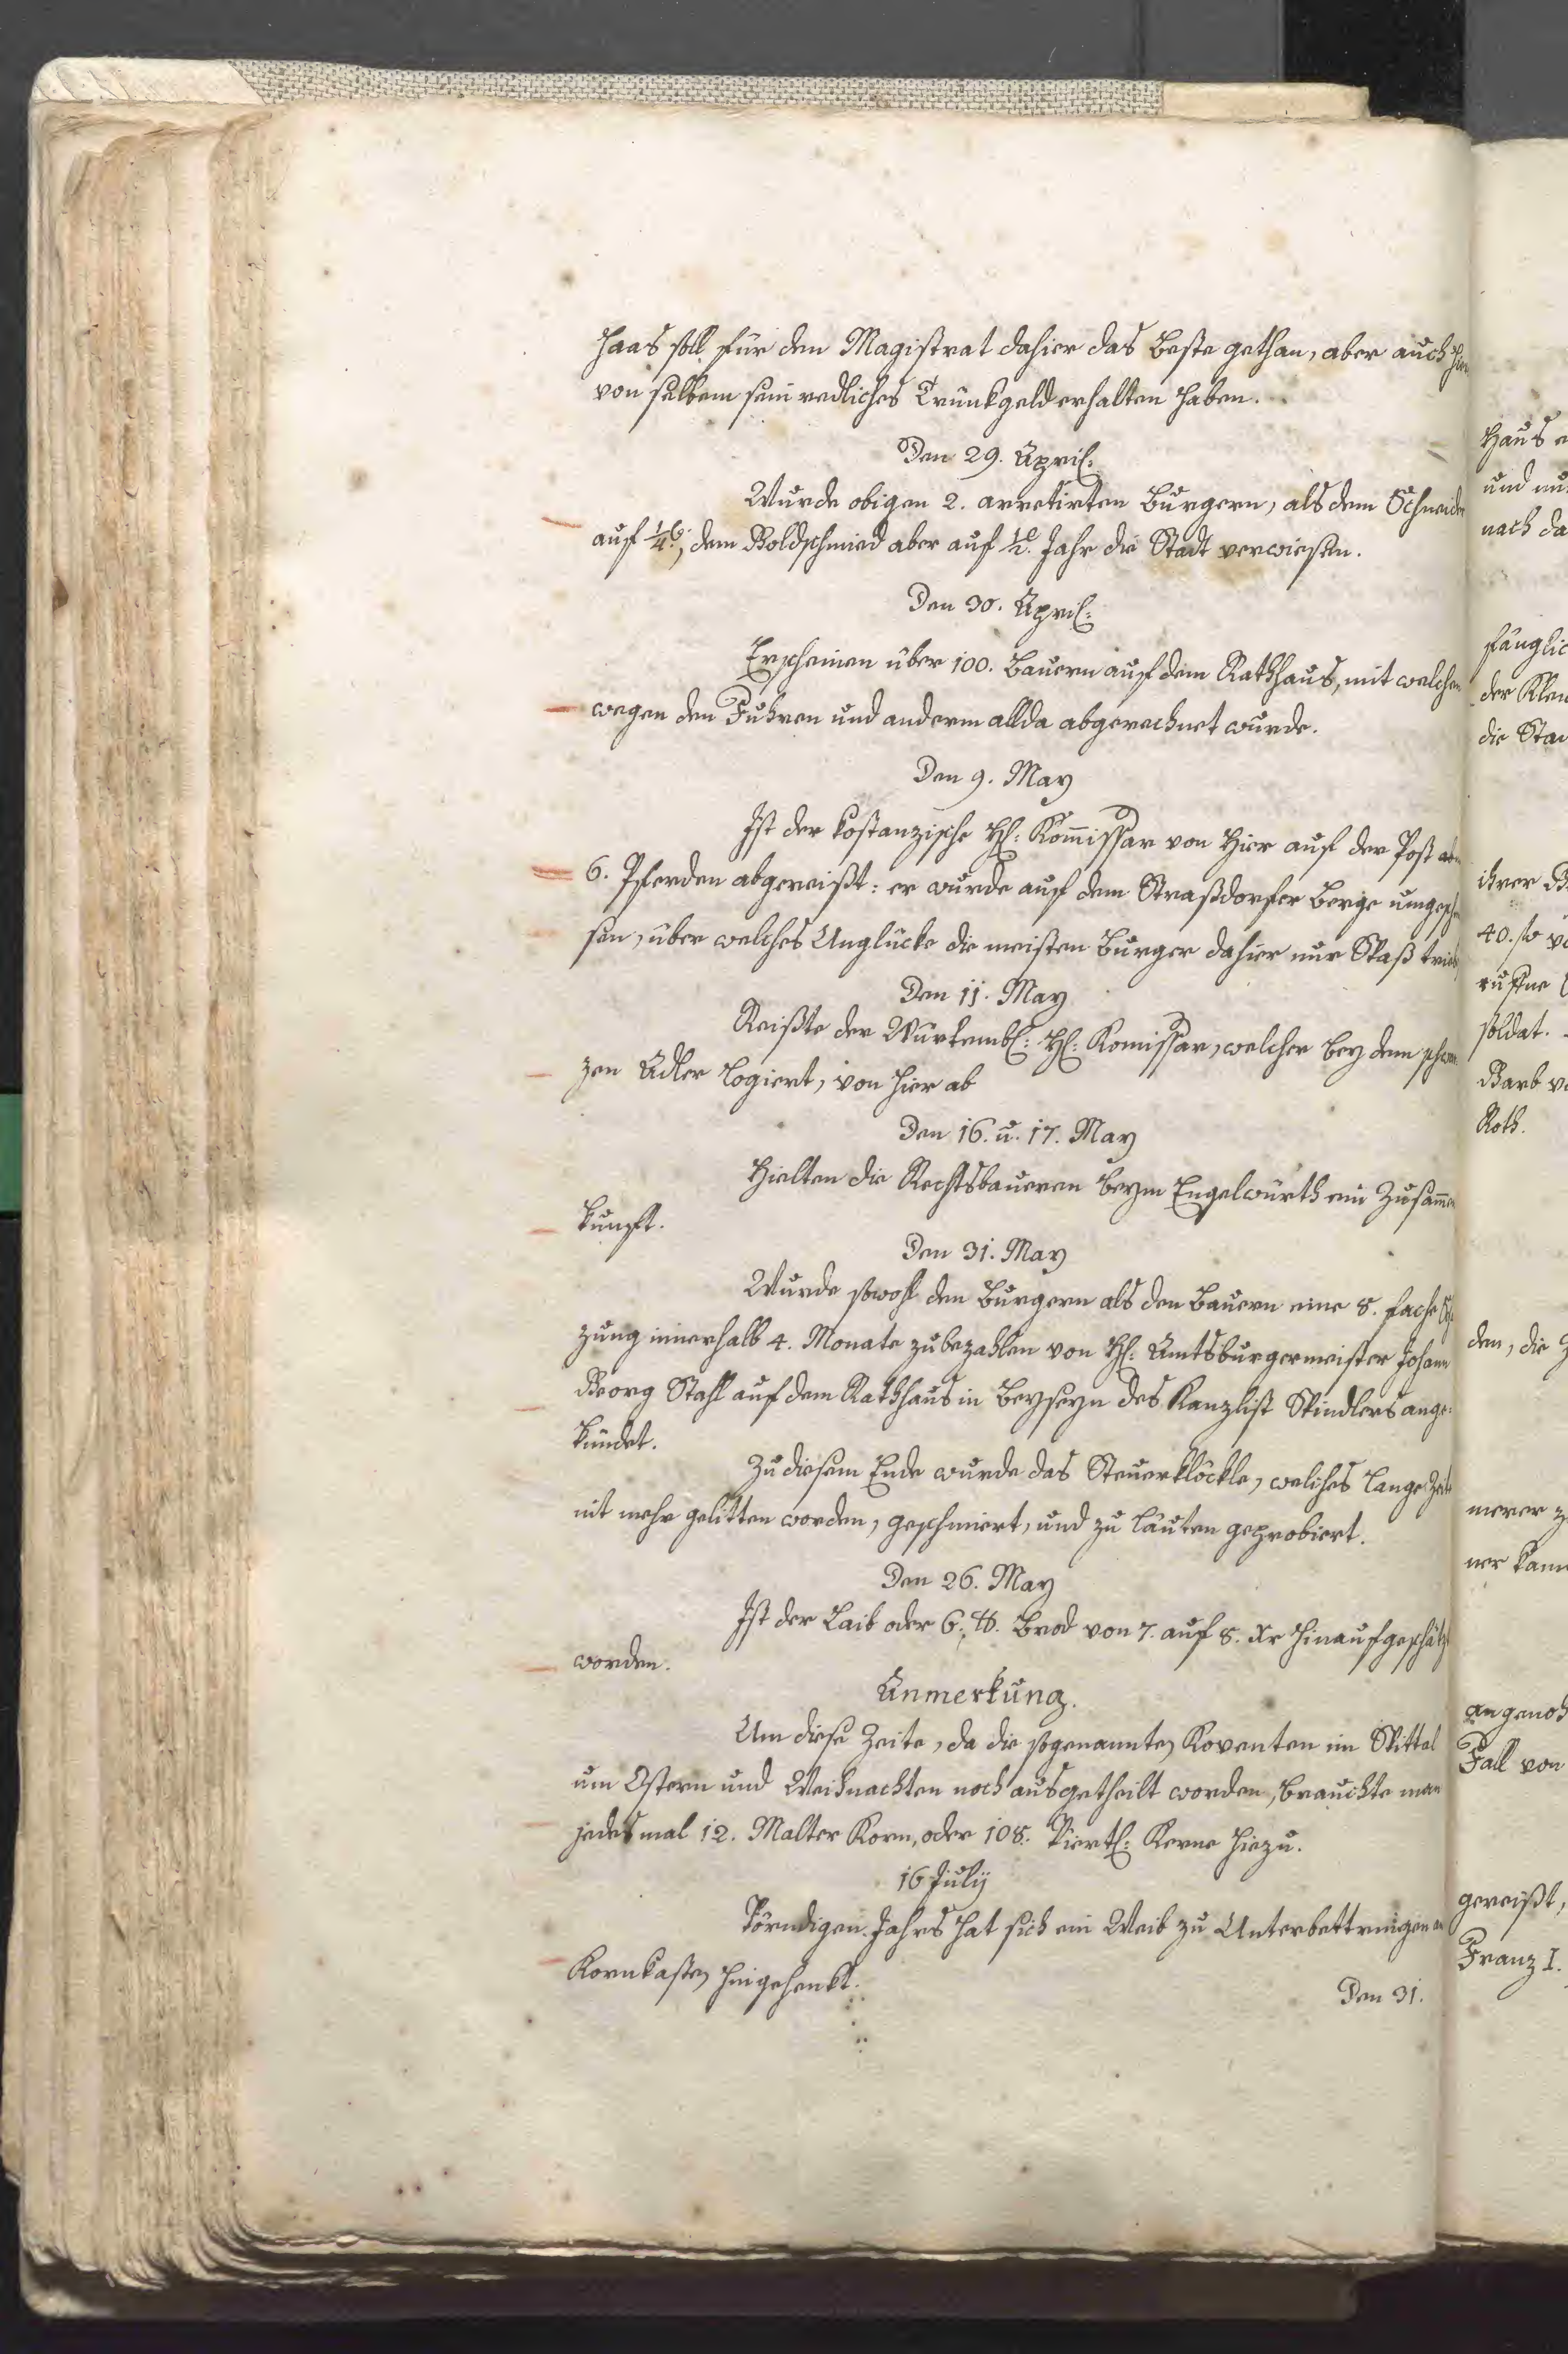 Haas soll für den Magistrat dahier das Beste gethan, aber auch
von selbem sein redliches Trünkgeld erhalten haben.
Den 29. April:
Wurde obigen 2. arretirten Burgern, als dem Schneider
auf 1/4, dem Goldschmied aber auf 1/2 Jahr die Stadt verwiesen.
Den 30. April:
Erscheinen über 100. Bauern auf dem Rathhaus, mit welchen
wegen den Fuhren und anderm allda abgerechnet wurde.
Den 9. May
Ist der kostanzische H: Kommissar von hier auf der Post
6. Pferden abgereißt: er wurde auf dem Straßdorfer Berge
sen, über welches Unglücke die meisten Burger dahier nur Spaß
Den 11. May
Reißte der Würtembl: H: Komissar, welcher bey dem
zen Adler logiert, von hier ab
Den 16. u. 17. May
Hielten die Rechtsbaueren beym Engelwürth ein Zusammen
kunft.
Den 31. May
Wurde sowohl den Burgern als den Bauern eine 8. fache
zung innerhalb 4. Monate zubezahlen von H: Amtsburgermeister Johann
Georg Stahl auf dem Rathhaus in Beyseyn des Kanzlist Spindlers ange-
kündet.
Zu diesem Ende wurde das Steuerklöckle, welches lange Zeit
nit mehr gelitten worden, geschmiert, und zu läuten geprobiert.
Den 26. May
Ist der Laib oder 6. ℔. Brod von 7. auf 8. Xr hinaufgeschätzt
worden.
Anmerkung.
Um diese Zeite, da die sogenannten Koventen im Spittal
um Ostern und Weihnachten noch ausgetheilt worden, brauchte man
jedesmal 12. Malter Korn, oder 108. Viertl: Kerne hiezu.
16 July
Jahrs hat sich ein Weib zu Unterbettringen
Kornkasten hingehenkt.
Den 31.
Haus
und
nach da
der
die
ihrer
40.
soldat.
Barb
Roth.
den, die
merer
ner
Fall von
gereißt,
Franz I.